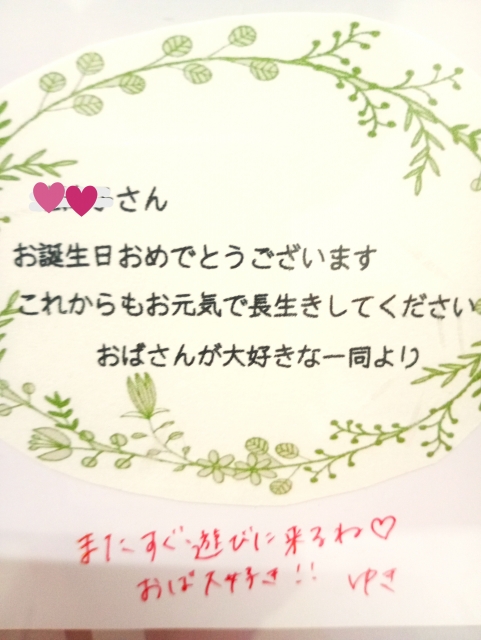 さん
お誕生日おめでとうございます
これからもお元気で長生きしてください
おばさんが大好きな一同より
またすぐ遊びに来るね♡
おば大好き!! ゆき